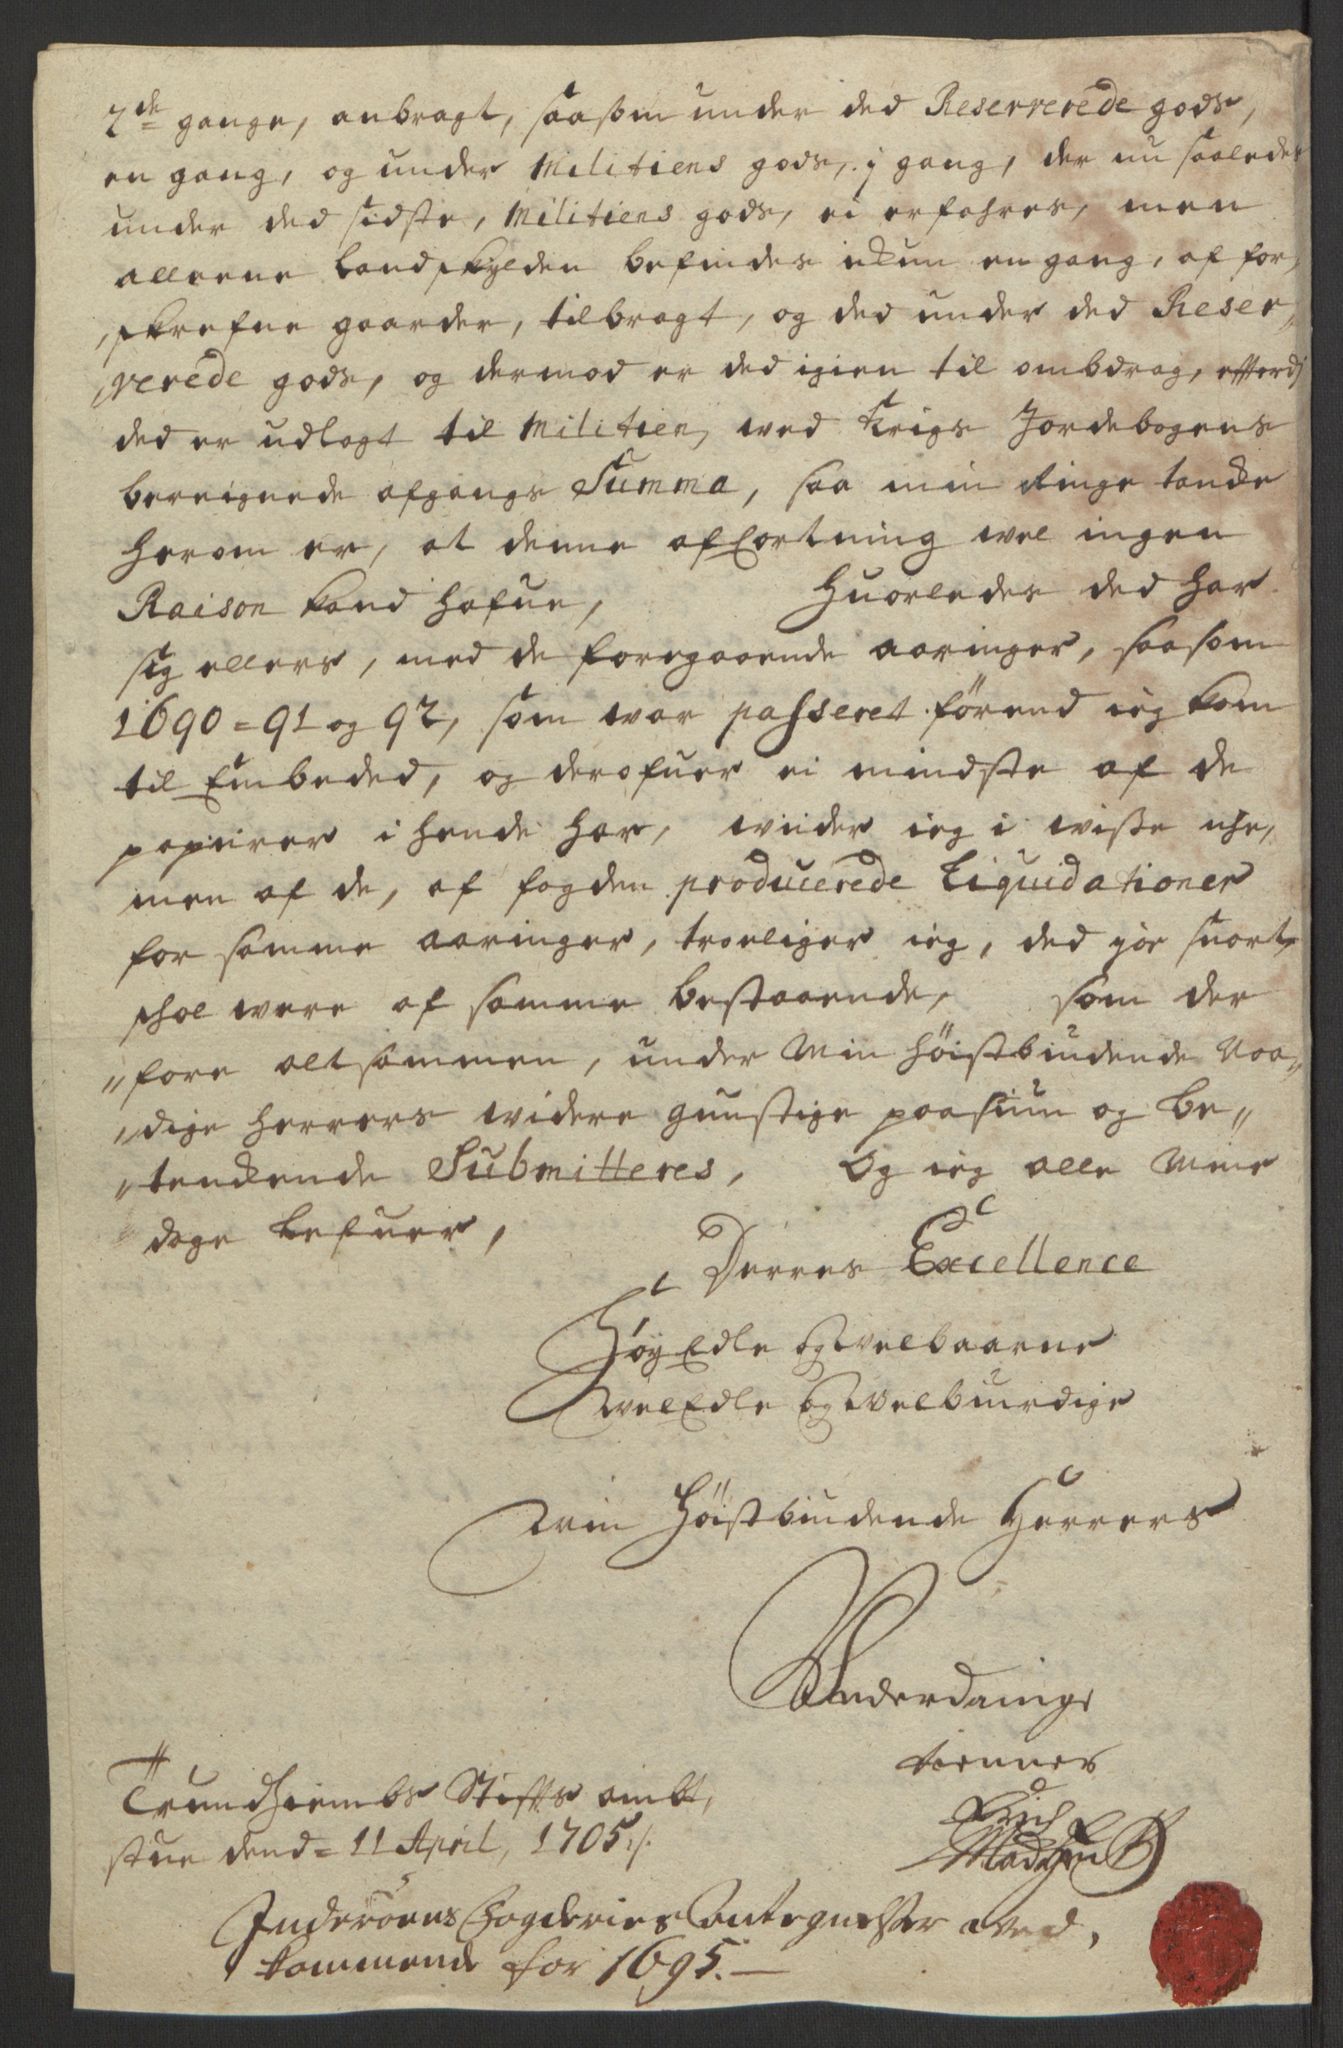 2de gange, anbragt, saasom under ded Reserverede gods,
en gang, og under Militiens gods, j gang, der nu saaledes
under ded sidste, Militiens gods, ei erfahres, men
alleene Landskylden befindes ickun en gang, af for,
,skrefne gaarder, tilbragt, og ded under ded Reser„
,verede gods, og dermod er ded igien til ombdrag, efterdj
ded er udlagt til Militien, wed Krigs Jordebogens
bereignede afgangs Summa, saa min Ringe tancke
herom er, at denne afCortning wel ingen
Raison kand hafue, Huorledes ded har
sig ellers, med de foregaaende aaringer, saasom
1690 = 91 og 92, som war passeret førend ieg kom
til Embeded, og derofuer ei mindste af de
papirer i hende har, wiider ieg i wisse iche,
men af de, af fogden producerede Liquidationer
for samme aaringer, troeliger ieg, ded jøe snort,
shol were af samme bestaaende, som der
„fore altsammen, under Min høistbiudende Naa„
„dige herrers widere gunstige paasiun og be„
„tenckende Submitteres, Og ieg alle Mine
dage lefuer,
Derres Excellence
HøyEdle og Velbaarne
WelEdle og Velbiurdige
Min Høistbiudende Herrers
Underdanige
tienner
Erich
Madsøn
Trundhiembs Stiffts ambt,
stue dend = 11 April, 1705 ./.
Inderøens Fogderies Antegnelser ved,
kommende for 1695. —